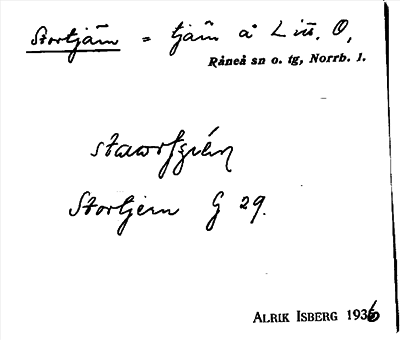 Stortjärn = tjärn å Lill. O,
Råneå sn o. tg, Norrb. l.
Stortjern G 29.
ALRIK ISBERG 1936